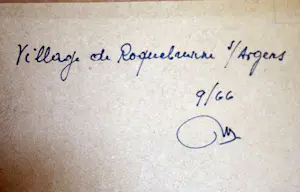 Village de Roquebrune s/Argens
9/66